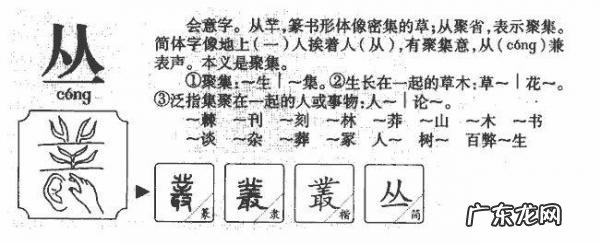 丛
cóng
会意字。从丵,篆书形体像密集的草;从聚省,表示聚集。
简体字像地上(一)人挨着人(从),有聚集意,从(cóng)兼
表声。本义是聚集。
①聚集:~生|~集。②生长在一起的草木:草~|花~。
③泛指集聚在一起的人或事物:人~|论~。
~棘 ~刊 ~刻 ~林 ~莽 ~山 ~木 ~书
~谈 ~杂 ~葬 ~冢 人~ 树~ 百弊~生
叢 篆
叢 隶
叢 楷
丛 简
广东龙网